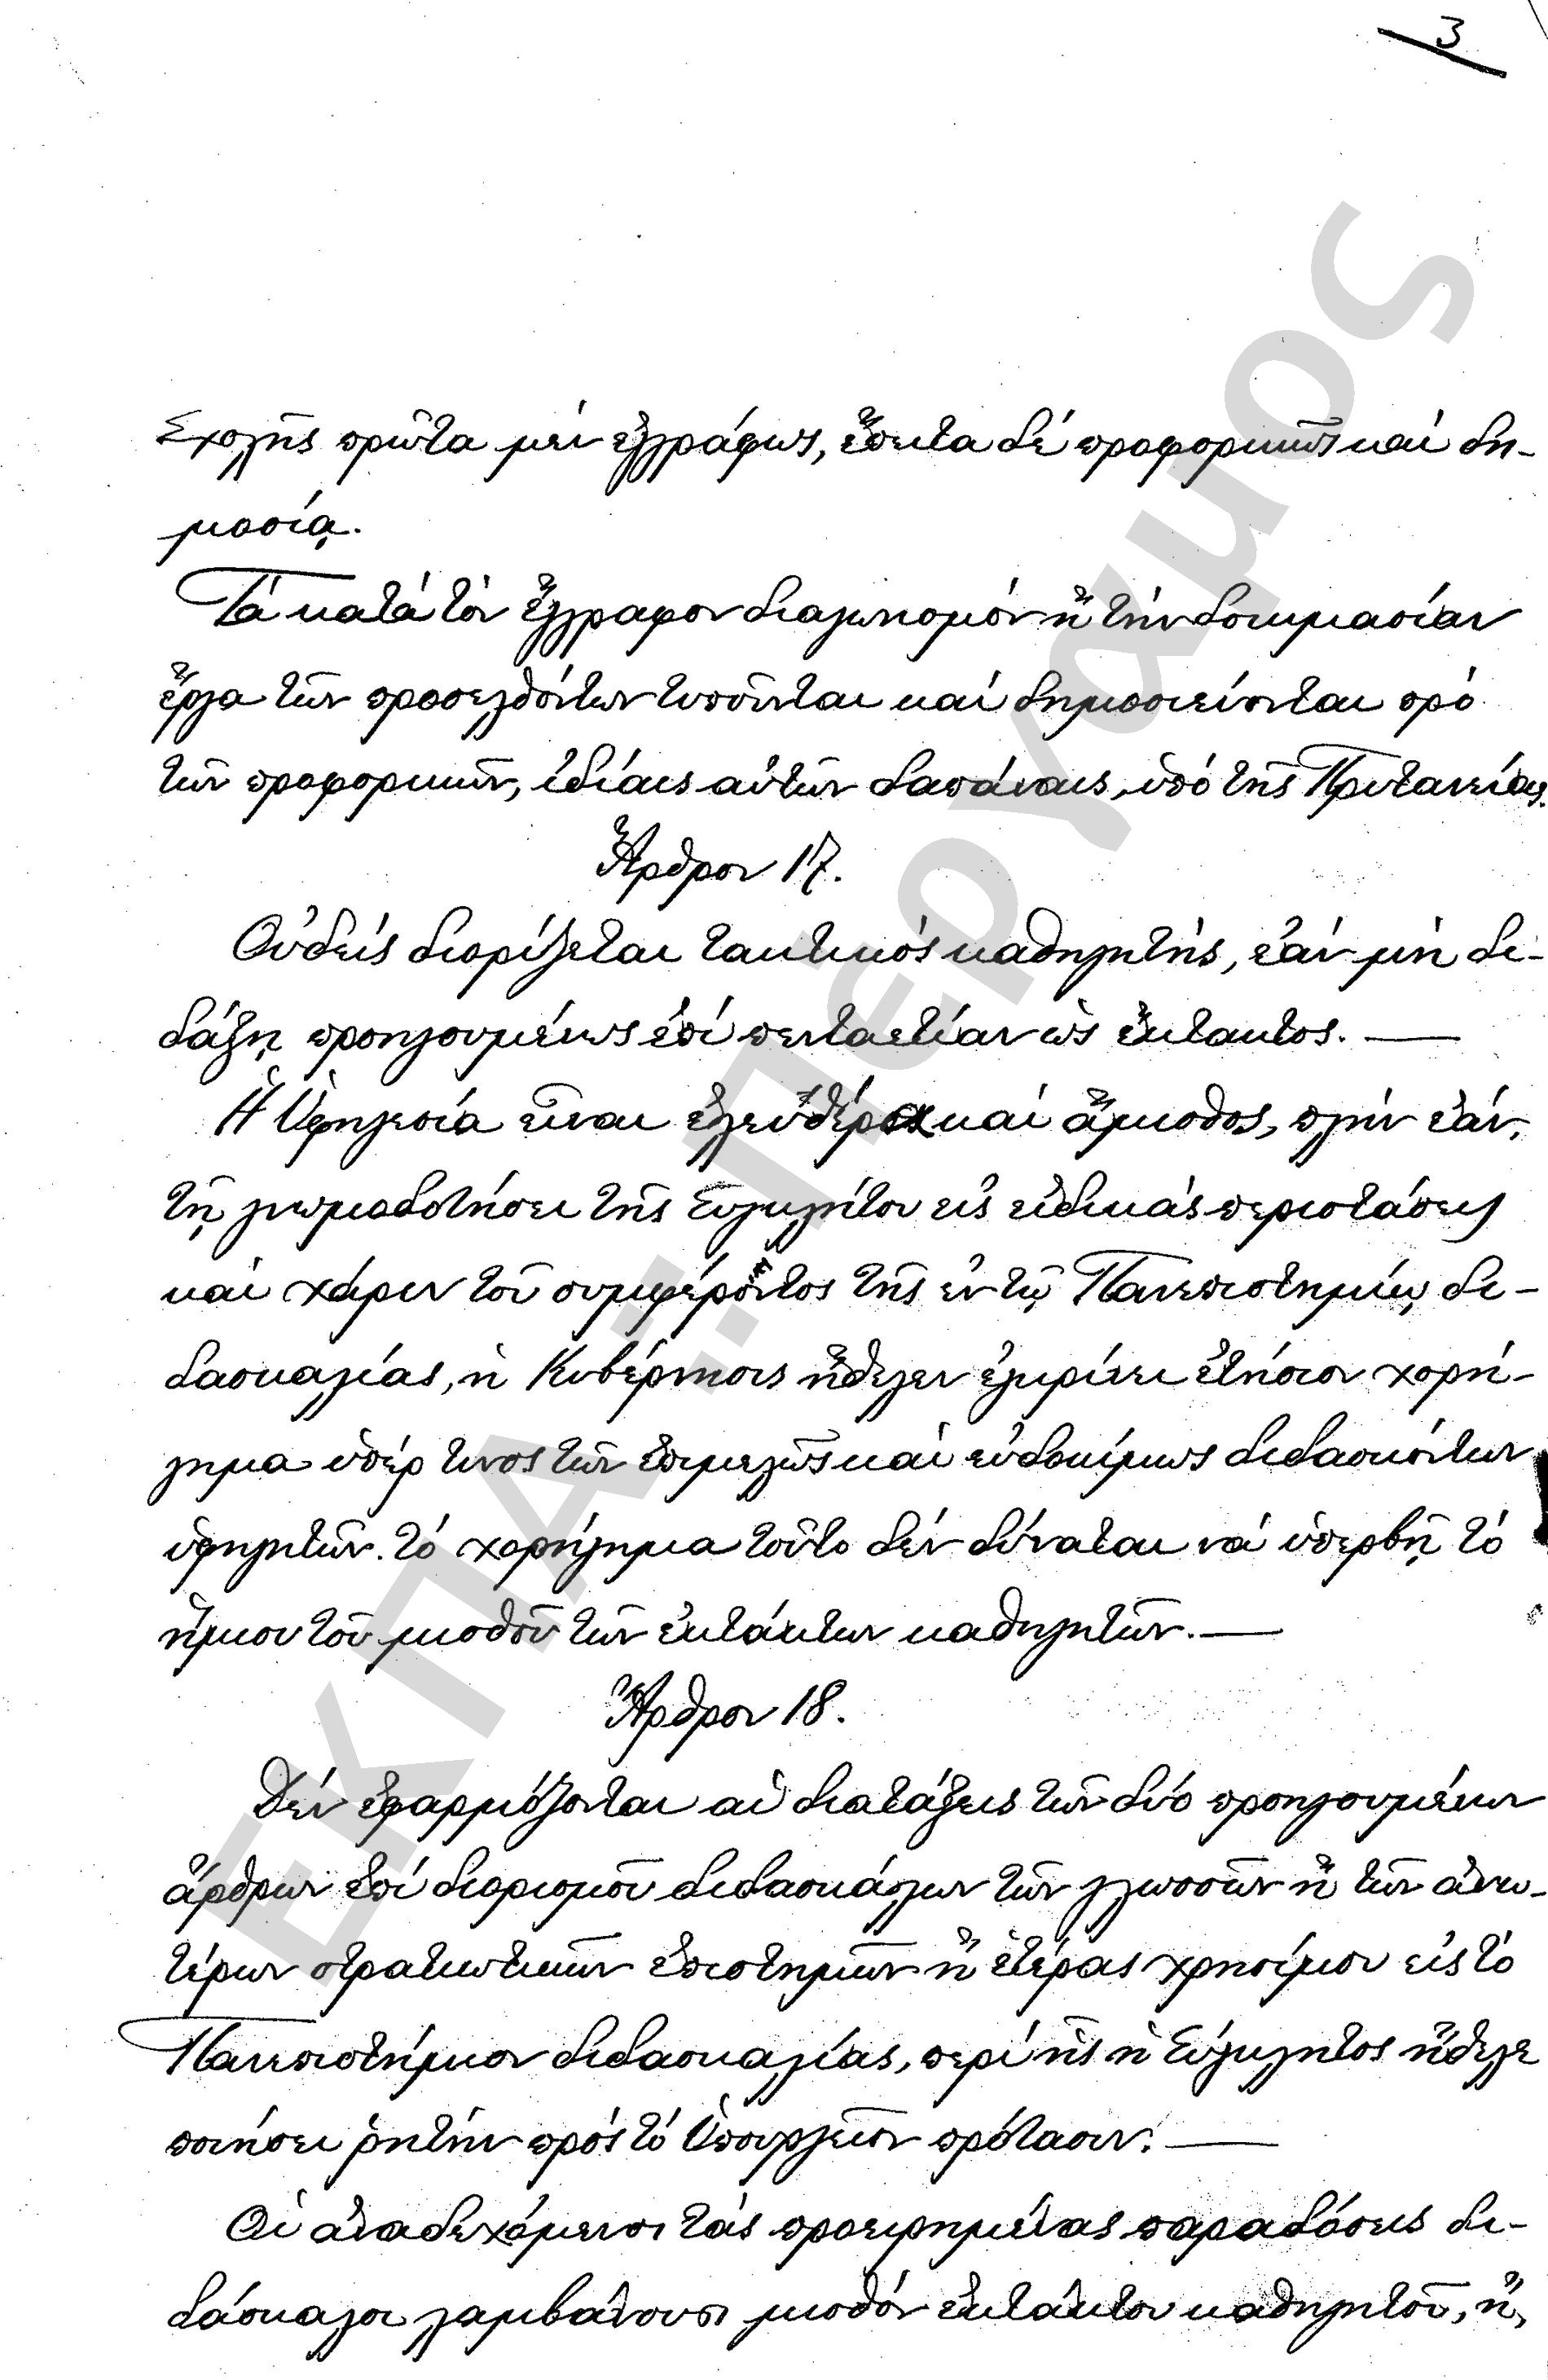 3
Σχολῆς πρῶτα μὲν ἐγγράφως, ἔπειτα δὲ προφορικῶς καὶ δη-
μοσίᾳ.
Τὰ κατὰ τὸν ἔγγραφον διαγωνισμὸν ἢ τὴν δοκιμασίαν
ἔργα τῶν προσελθόντων τυποῦνται καὶ δημοσιεύονται πρὸ
τῶν προφορικῶν, ἰδίαις αὐτῶν δαπάναις, ὑπὸ τῆς Πρυτανείας.
Ἄρθρον 17.
Οὐδεὶς διορίζεται τακτικὸς καθηγητής, ἐὰν μὴ δι-
δάξῃ προηγουμένως ἐπὶ πενταετίαν ὡς ἔκτακτος. —
Ἡ Ὑφηγεσία εἶναι ἐλευθέρα καὶ ἄμισθος, πλὴν ἐάν,
τῇ γνωμοδοτήσει τῆς Συγκλήτου εἰς εἰδικὰς περιστάσεις
καὶ χάριν τοῦ συμφέροντος τῆς ἐν τῷ Πανεπιστημίῳ δι-
δασκαλίας, ἡ Κυβέρνησις ἤθελεν ἐγκρίνει ἐτήσιον χορή-
γημα ὑπέρ τινος τῶν ἐπιμελῶς καὶ εὐδοκίμως διδασκόντων
ὑφηγητῶν. τὸ χορήγημα τοῦτο δὲν δύναται νὰ ὑπερβῇ τὸ
ἥμισυ τοῦ μισθοῦ τῶν ἐκτάκτων καθηγητῶν. —
Ἄρθρον 18.
Δὲν ἐφαρμόζονται αἱ διατάξεις τῶν δύο προηγουμένων
ἄρθρων ἐπὶ διορισμοῦ διδασκάλων τῶν γλωσσῶν ἢ τῶν ἀνω-
τέρων στρατιωτικῶν ἐπιστημῶν ἢ ἑτέρας χρησίμου εἰς τὸ
Πανεπιστήμιον διδασκαλίας, περὶ ἧς ἡ Σύγκλητος ἤθελε
ποιήσει ῥητὴν πρὸς τὸ Ὑπουργεῖον πρότασιν. —
Οἱ ἀναδεχόμενοι τὰς προειρημένας παραδόσεις δι-
δάσκαλοι λαμβάνουσι μισθὸν ἐκτάκτου καθηγητοῦ, ἤ,
ΕΚΠΑ.: Πέργαμος